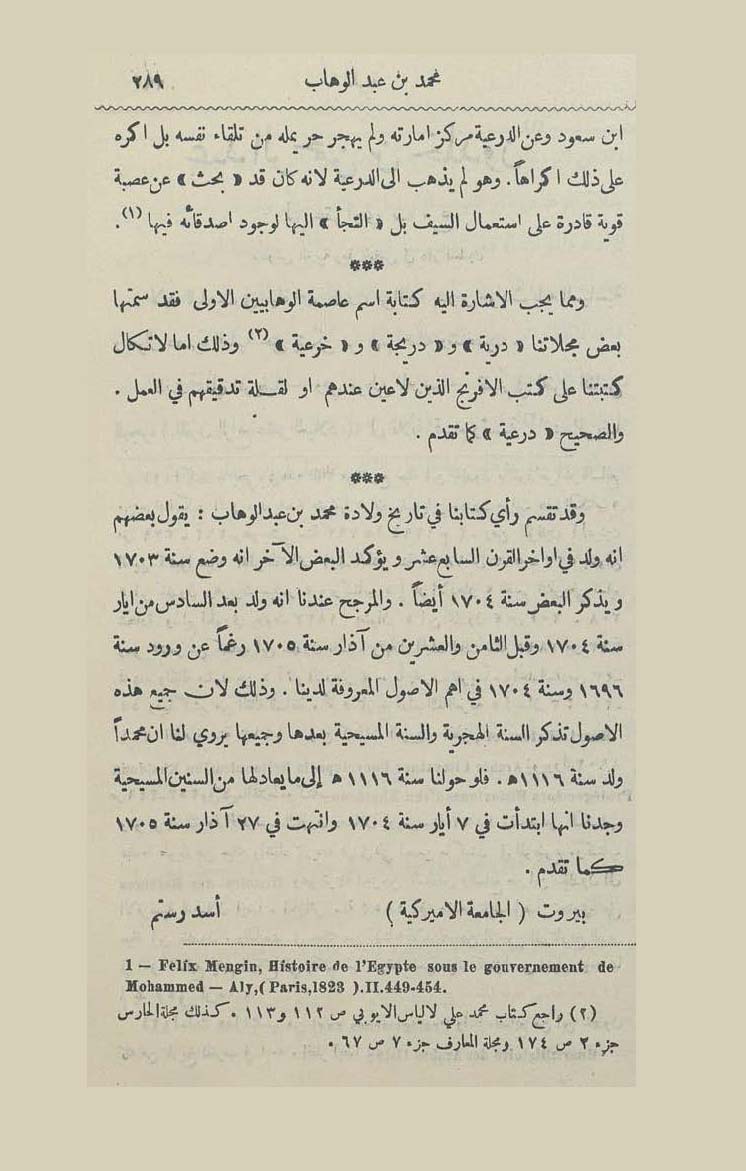 محمد بن عبد الوهاب ٢٨٩
ابن سعود وعن الدرعية مركز امارته ولم يهجر حريمله من تلقاء نفسه بل اكره
على ذلك اكراهاً. وهو لم يذهب الى الدرعية لانه كان قد « بحث » عن عصبة
قوية قادرة على استعمال السيف بل « التجأ » اليها لوجود اصدقائه فيها (١).
***
ومما يجب الاشارة اليه كتابة اسم عاصمة الوهابيين الاولى فقد سمتها
بعض مجلاتنا « درية » و « دريجة » و « خرعية » (٢) وذلك اما لاتكال
كتبتنا على كتب الافرنج الذين لاعين عندهم او لقلة تدقيقهم في العمل .
والصحيح « درعية » كما تقدم .
***
وقد تقسم رأي كتابنا في تاريخ ولادة محمد بن عبد الوهاب : يقول بعضهم
انه ولد في اواخر القرن السابع عشر ويؤكد البعض الآخر انه وضع سنة ١٧٠٣
ويذكر البعض سنة ١٧٠٤ أيضاً . والمرجح عندنا انه ولد بعد السادس من ايار
سنة ١٧٠٤ وقبل الثامن والعشرين من آذار سنة ١٧٠٥ رغماً عن ورود سنة
١٦٩٦ وسنة ١٧٠٤ في اهم الاصول المعروفة لدينا . وذلك لان جميع هذه
الاصول تذكر السنة الهجرية والسنة المسيحية بعدها وجميعها يروي لنا ان محمداً
ولد سنة ١١١٦ه . فلو حولنا سنة ١١١٦ ه إلى ما يعادلها من السنين المسيحية
وجدنا انها ابتدأت في ٧ أيار سنة ١٧٠٤ وانتهت في ٢٧ آذار سنة ١٧٠٥
كما تقدم .
بيروت ( الجامعة الاميركية ) أسد رستم
1 — Felix Mengin, Histoire de l'Egypte sous le gouvernement de
Mohammed — Aly,( Paris,1823 ).II.449-454.
(٢) راجع كتاب محمد علي لالياس الايوبي ص ١١٢ و ١١٣ . كذلك مجلة الحارس
جزء ٢ ص ١٧٤ ومجلة المعارف جزء ٧ ص ٦٧ .